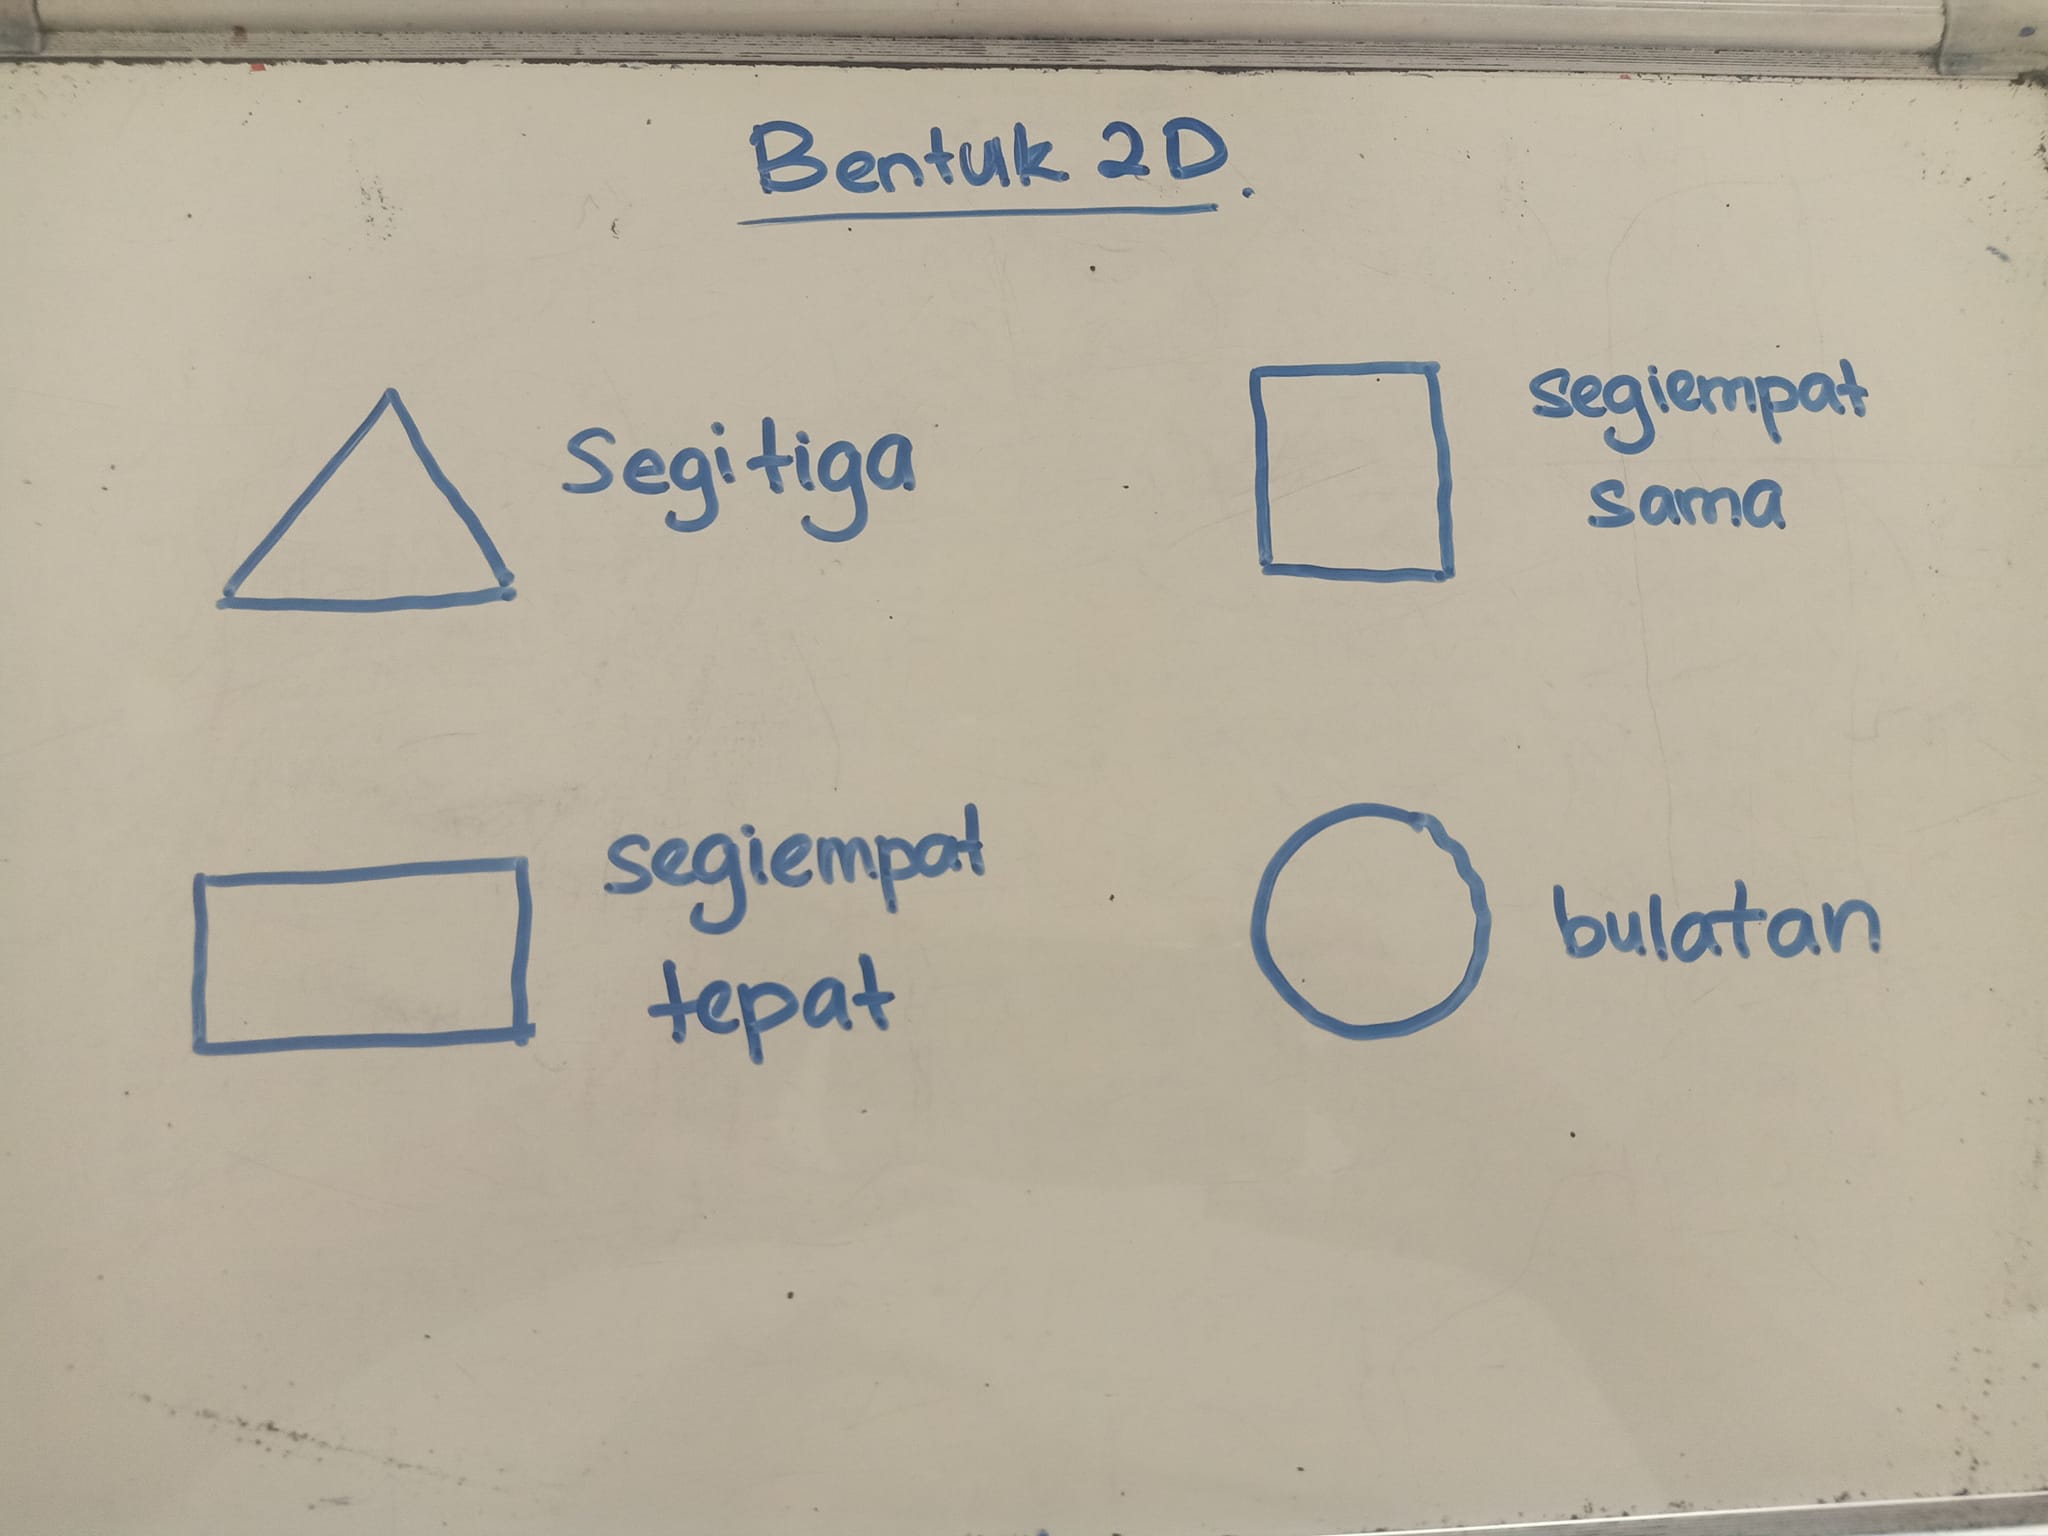 Bentuk 2D.
Segitiga
segiempat
sama
segiempat
tepat
bulatan